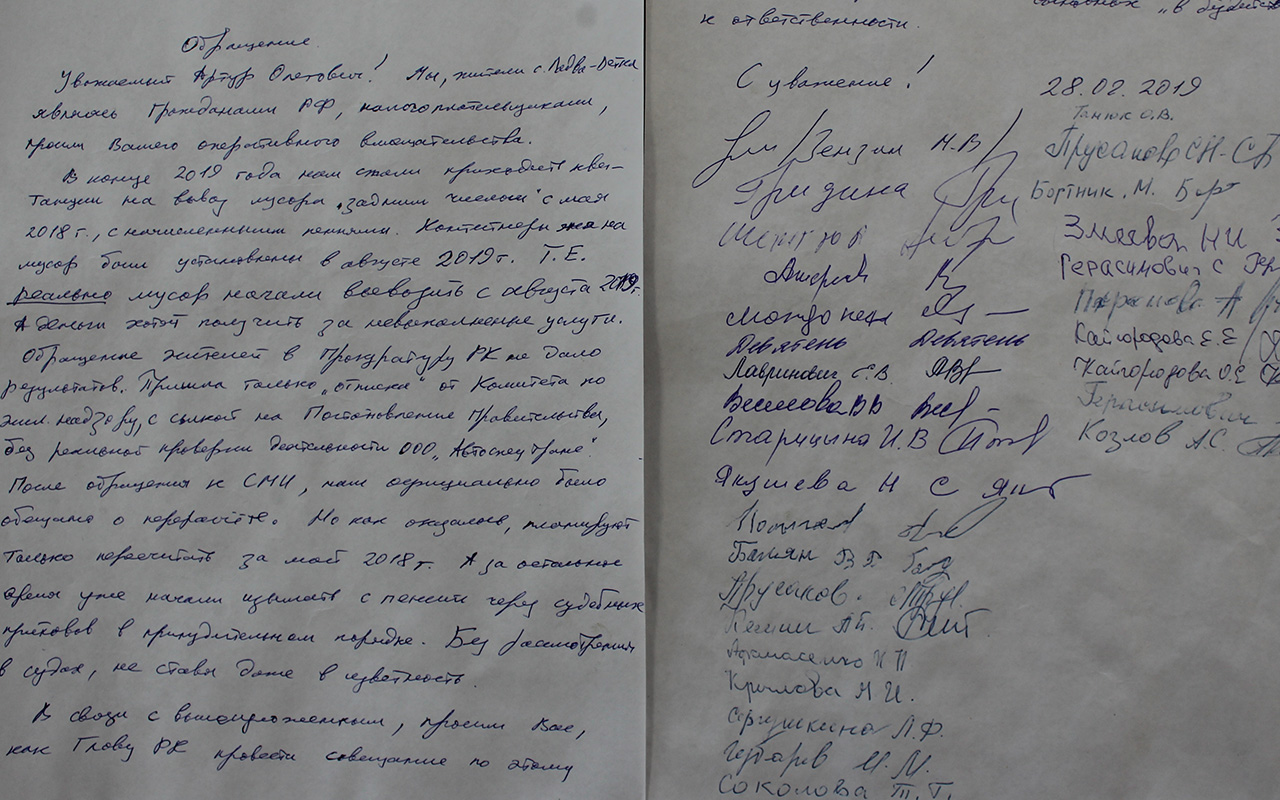 Обращение.
Уважаемый Артур Олегович! Мы, жители с.
являясь Гражданами РФ, налогоплательщиками,
просим Вашего оперативного вмешательства.
В конце 2019 года нам стали приходить кви-
танции на вывоз мусора „задним числом“ с мая
2018 г., с начисленными пенями. Контейнеры на
мусор были установлены в августе 2019 г. Т.Е.
реально мусор начали вывозить с августа 2019 г.
А деньги хотят получить за невыполненные услуги.
Обращение жителей в Прокуратуру РК не дало
результатов. Пришла только „отписка“ от Комитета по
жил. надзору, с сылкой на Постановление Правительства,
без реальной проверки деятельности ООО „Автоспецтранс“.
После обращения к СМИ, нам официально было
обещано о перерасчёте. Но как оказалось, планируют
только пересчитать за май 2018 г. А за остальное
время уже начали изымать с пенсии через судебных
приставов в принудительном порядке. Без рассмотрения
в судах, не ставя даже в известность.
В связи с вышеизложенным, просим Вас,
как Главу РК провести совещание по этому
к ответственности.
С уважение!
Вензин Н.В.
Гридина
Андрей
Девятень Девятень
Лавринович С.В.
Веселова В В
Старицина И.В
Якушева Н С
Бажан В Г
Прусаков.
Афанасенко Н П
Крылова Н И.
Сергушкина Л.Ф.
Гайдарев И.М.
Соколова Т.Г.
28.02.2019
Танюк О.В.
Прусакова СН
Бортник. М.
Змаева НИ
Герасимович С
А
Кайгородова Е.Е
Кайгородова О.Е
Герасимович
Козлов А.С.